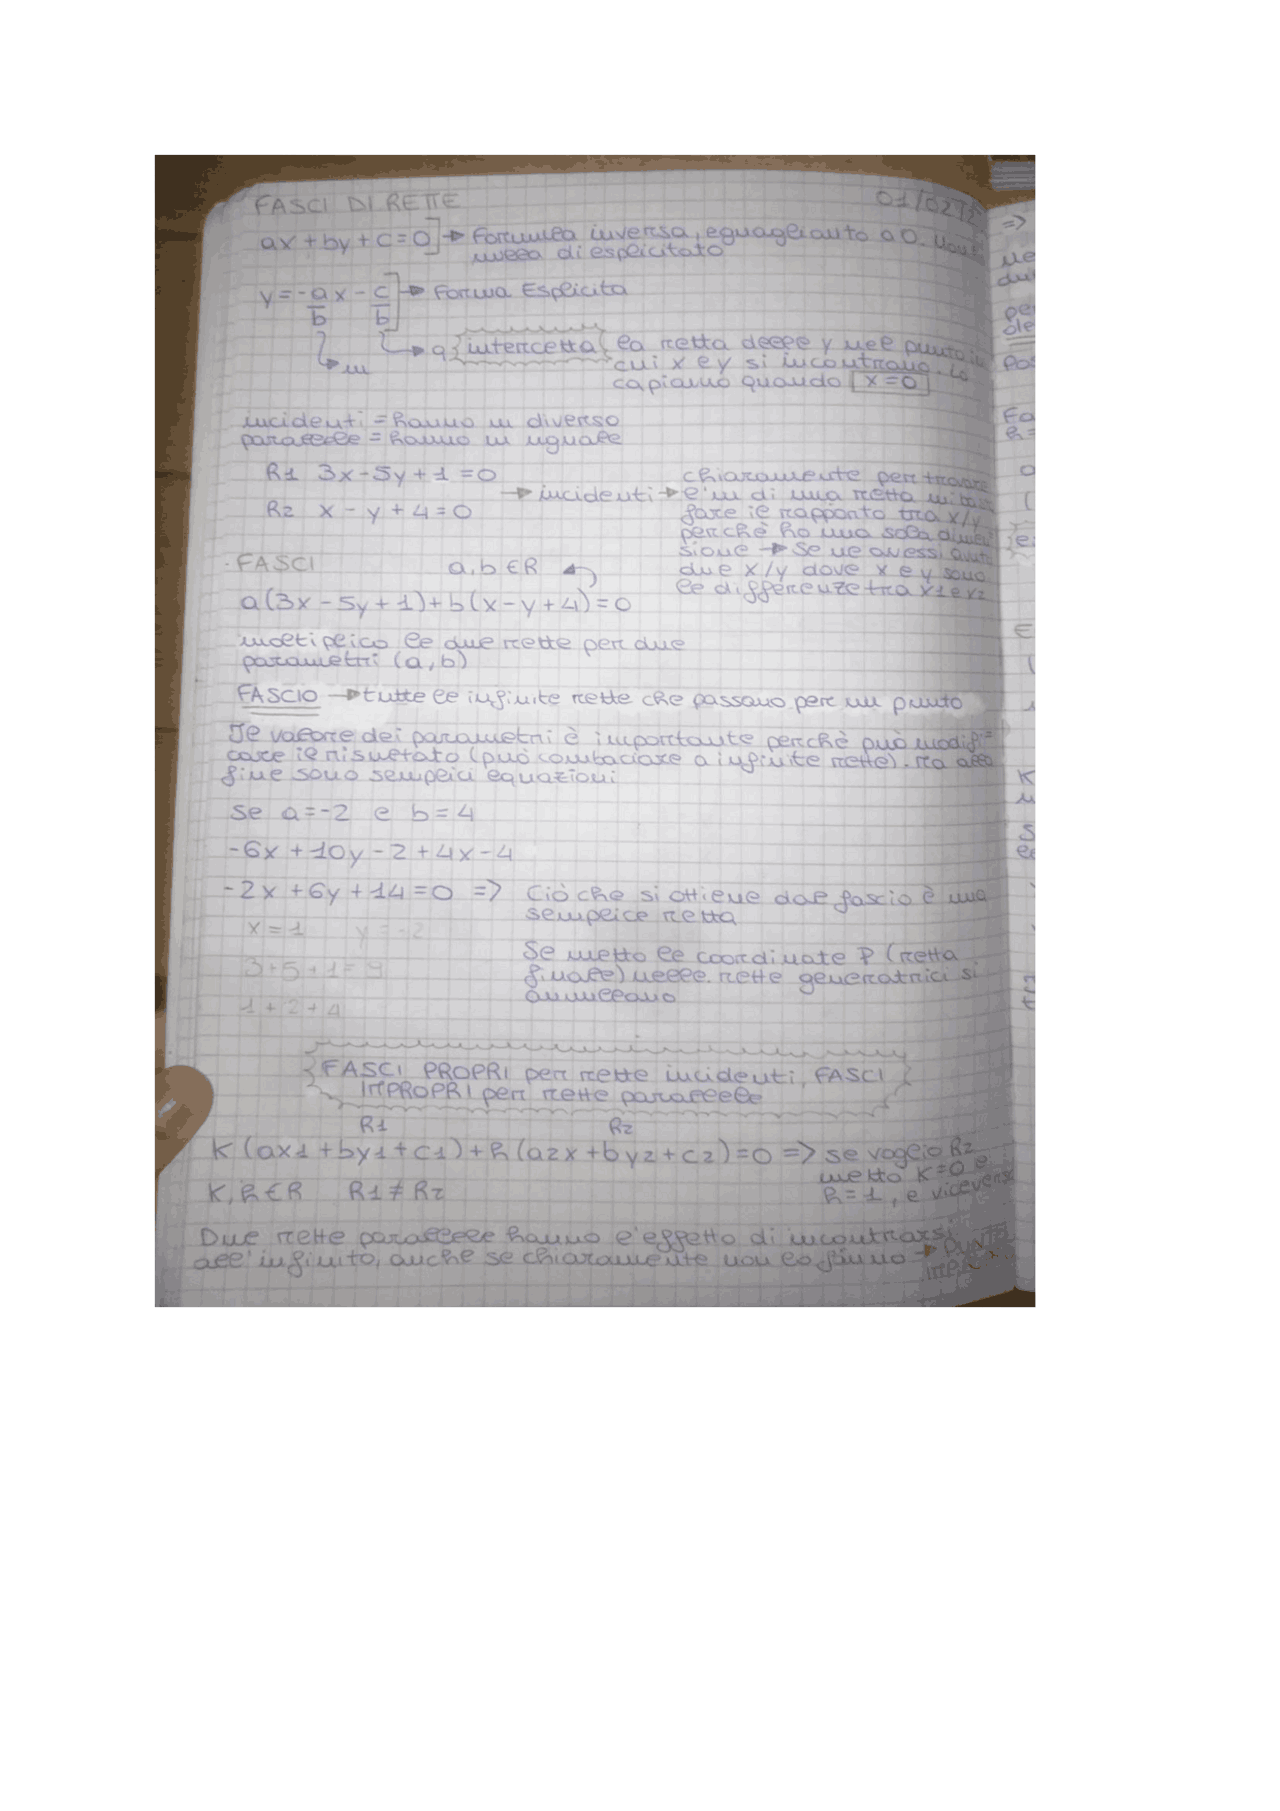 FASCI DI RETTE
ax + by + c = 0] → Formula inversa, eguagliauto a 0.
nulla di esplicitato
y = -a/b x - c/b] → Forma Esplicita
→ m
→ q {intercetta} la retta delle y nel punto in
cui x e y si incontrano. Lo
capiamo quando [x=0]
incidenti = hanno m diverso
parallele = hanno m uguale
R1 3x - 5y + 1 = 0
R2 x - y + 4 = 0
→ incidenti →
chiaramente per trovare
l'm di una retta mi basta
fare il rapporto tra x/y
perchè ho una sola dimen
sione → Se ne avessi avute
due x/y dove x e y sono
le differenze tra x1 e x2
· FASCI a, b ∈ R
a(3x - 5y + 1) + b(x - y + 4) = 0
moltiplico le due rette per due
parametri (a, b)
FASCIO → tutte le infinite rette che passano per un punto
Il valore dei parametri è importante perchè può modifi=
care il risultato (può combaciare a infinite rette). Ma alla
fine sono semplici equazioni
Se a = -2 e b = 4
-6x + 10y - 2 + 4x - 4
-2x + 6y + 14 = 0 => Ciò che si ottiene dal fascio è una
semplice retta
x = 1 y = -2
3 + 5 + 1 = 9
1 + 2 + 4
Se metto le coordinate P (retta
finale) nelle rette generatrici si
annullano
FASCI PROPRI per rette incidenti, FASCI
IMPROPRI per rette parallele
R1 R2
K (ax1 + by1 + c1) + h (a2x + by2 + c2) = 0 => se voglio R2
metto K = 0 e
h = 1, e viceversa
K, h ∈ R R1 ≠ R2
Due rette parallele hanno l'effetto di incontrarsi
all'infinito, anche se chiaramente non lo fanno →